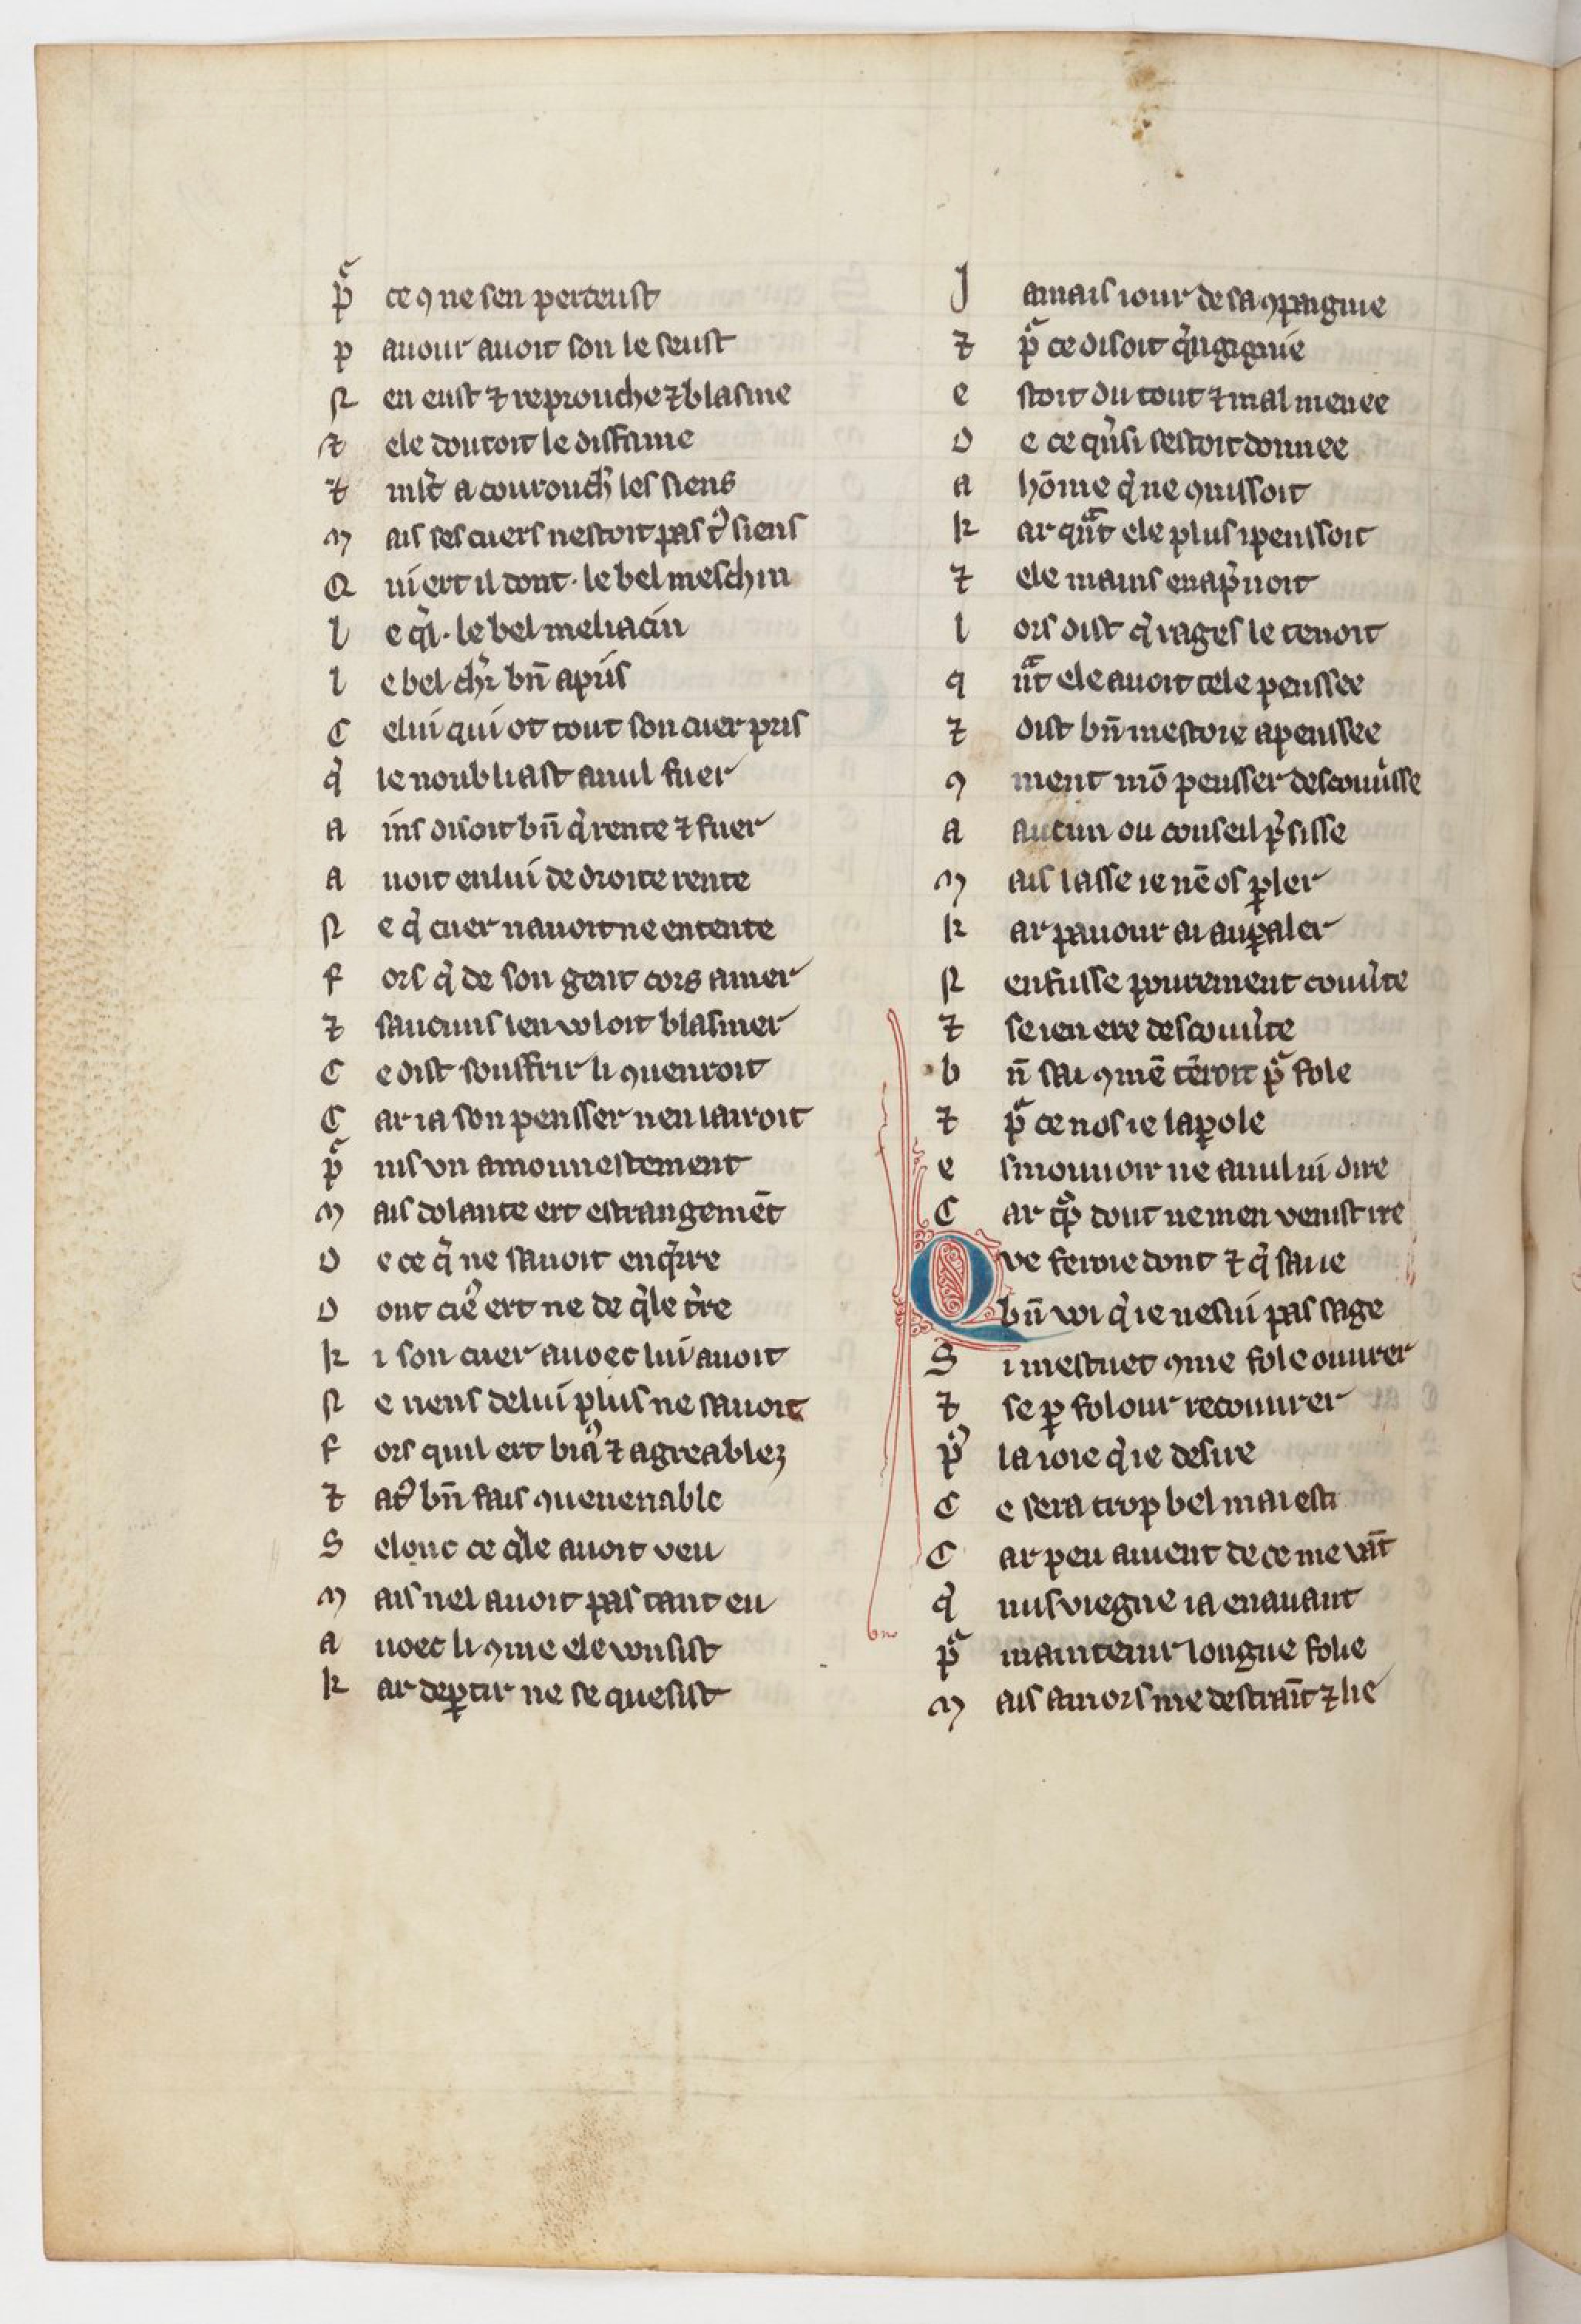 pͣ ce ꝯ ne sen perceust
p auour auoit son le seust
N en eust ⁊ reprouche ⁊ blasme
⁊ ele doutoit le diffame
⁊ mlt̕ a courouch̕ les siens
M ais ses cuers nestoit pas t͛ siens
Q ui ert il dont · le bel meschin
l e q̕l · le bel meliacin
l e bel ch̕r bn̄ apris
C elui qui ot tout son cuer pris
q̕ le noubliast anul fuer
a ins disoit bn̄ q̕ rente ⁊ fuer
a uoit enlui de droite rente
N e q̕ cuer nauoit ne entente
f ors q̕ de son gent cors amer
⁊ saucuns len voloit blasmer
C e dist souffrir li ꝯuenroit
C ar ia son pensser nen lairoit
pͣ nis vn amonnestement
M ais dolante ert estrangemēt
D e ce q̕ ne sauoit enq̕rre
D ont cie͛ ert ne de q̕le t̕re
k i son cuer auoec lui auoit
N e riens delui plus ne sauoit
f ors quil ert biaͣ ⁊ agreablez
⁊ at͛ bn̄ fais ꝯuenenable
S elonc ce q̕le auoit veu
M ais nel auoit pas tant eu
a uoec li ꝯme ele vousist
k ar deꝑtir ne se quesist
J amais iour de sa ꝯpaignie
⁊ pͣ ce disoit q̕ngignie
e stoit du tout ⁊ mal menee
D e ce q̕nsi sestoit donnee
a hōme q̕ ne ꝯnissoit
k ar qͣnt ele plus ipenssoit
⁊ ele mains enap̕noit
l ors dist q̕ rages le tenoit
q ͣnt ele auoit tele penssee
⁊ dist bn̄ mestoie apenssee
ꝯ ment mō pensser descouu̕isse
a aucun ou conseil p̕sisse
M ais lasse ie nē os ꝑler
k ar pauour ai au ꝑaler
N enfusse purement couu̕te
⁊ se ien ere descouu̕te
b n̄ sai ꝯmē te͛roit pͣ fole
⁊ pͣ ce nos ie la ꝑole
e smouuoir ne anului dire
C ar q̕ꝑ dout ne men venist ire
Que feroie dont ⁊ q̕ saue
bn̄ voi q̕ ie nesui pas sage
S i mestuet ꝯme fole ouurer
⁊ se ꝑ folour recouurer
p͛ la ioie q̕ ie desire
C e sera trop bel mai estr
C ar peu auient de ce me vāt
q̕ nus viegne ia enauant
pͣ maintenir longue folie
M ais amors me destraīt ⁊ lie